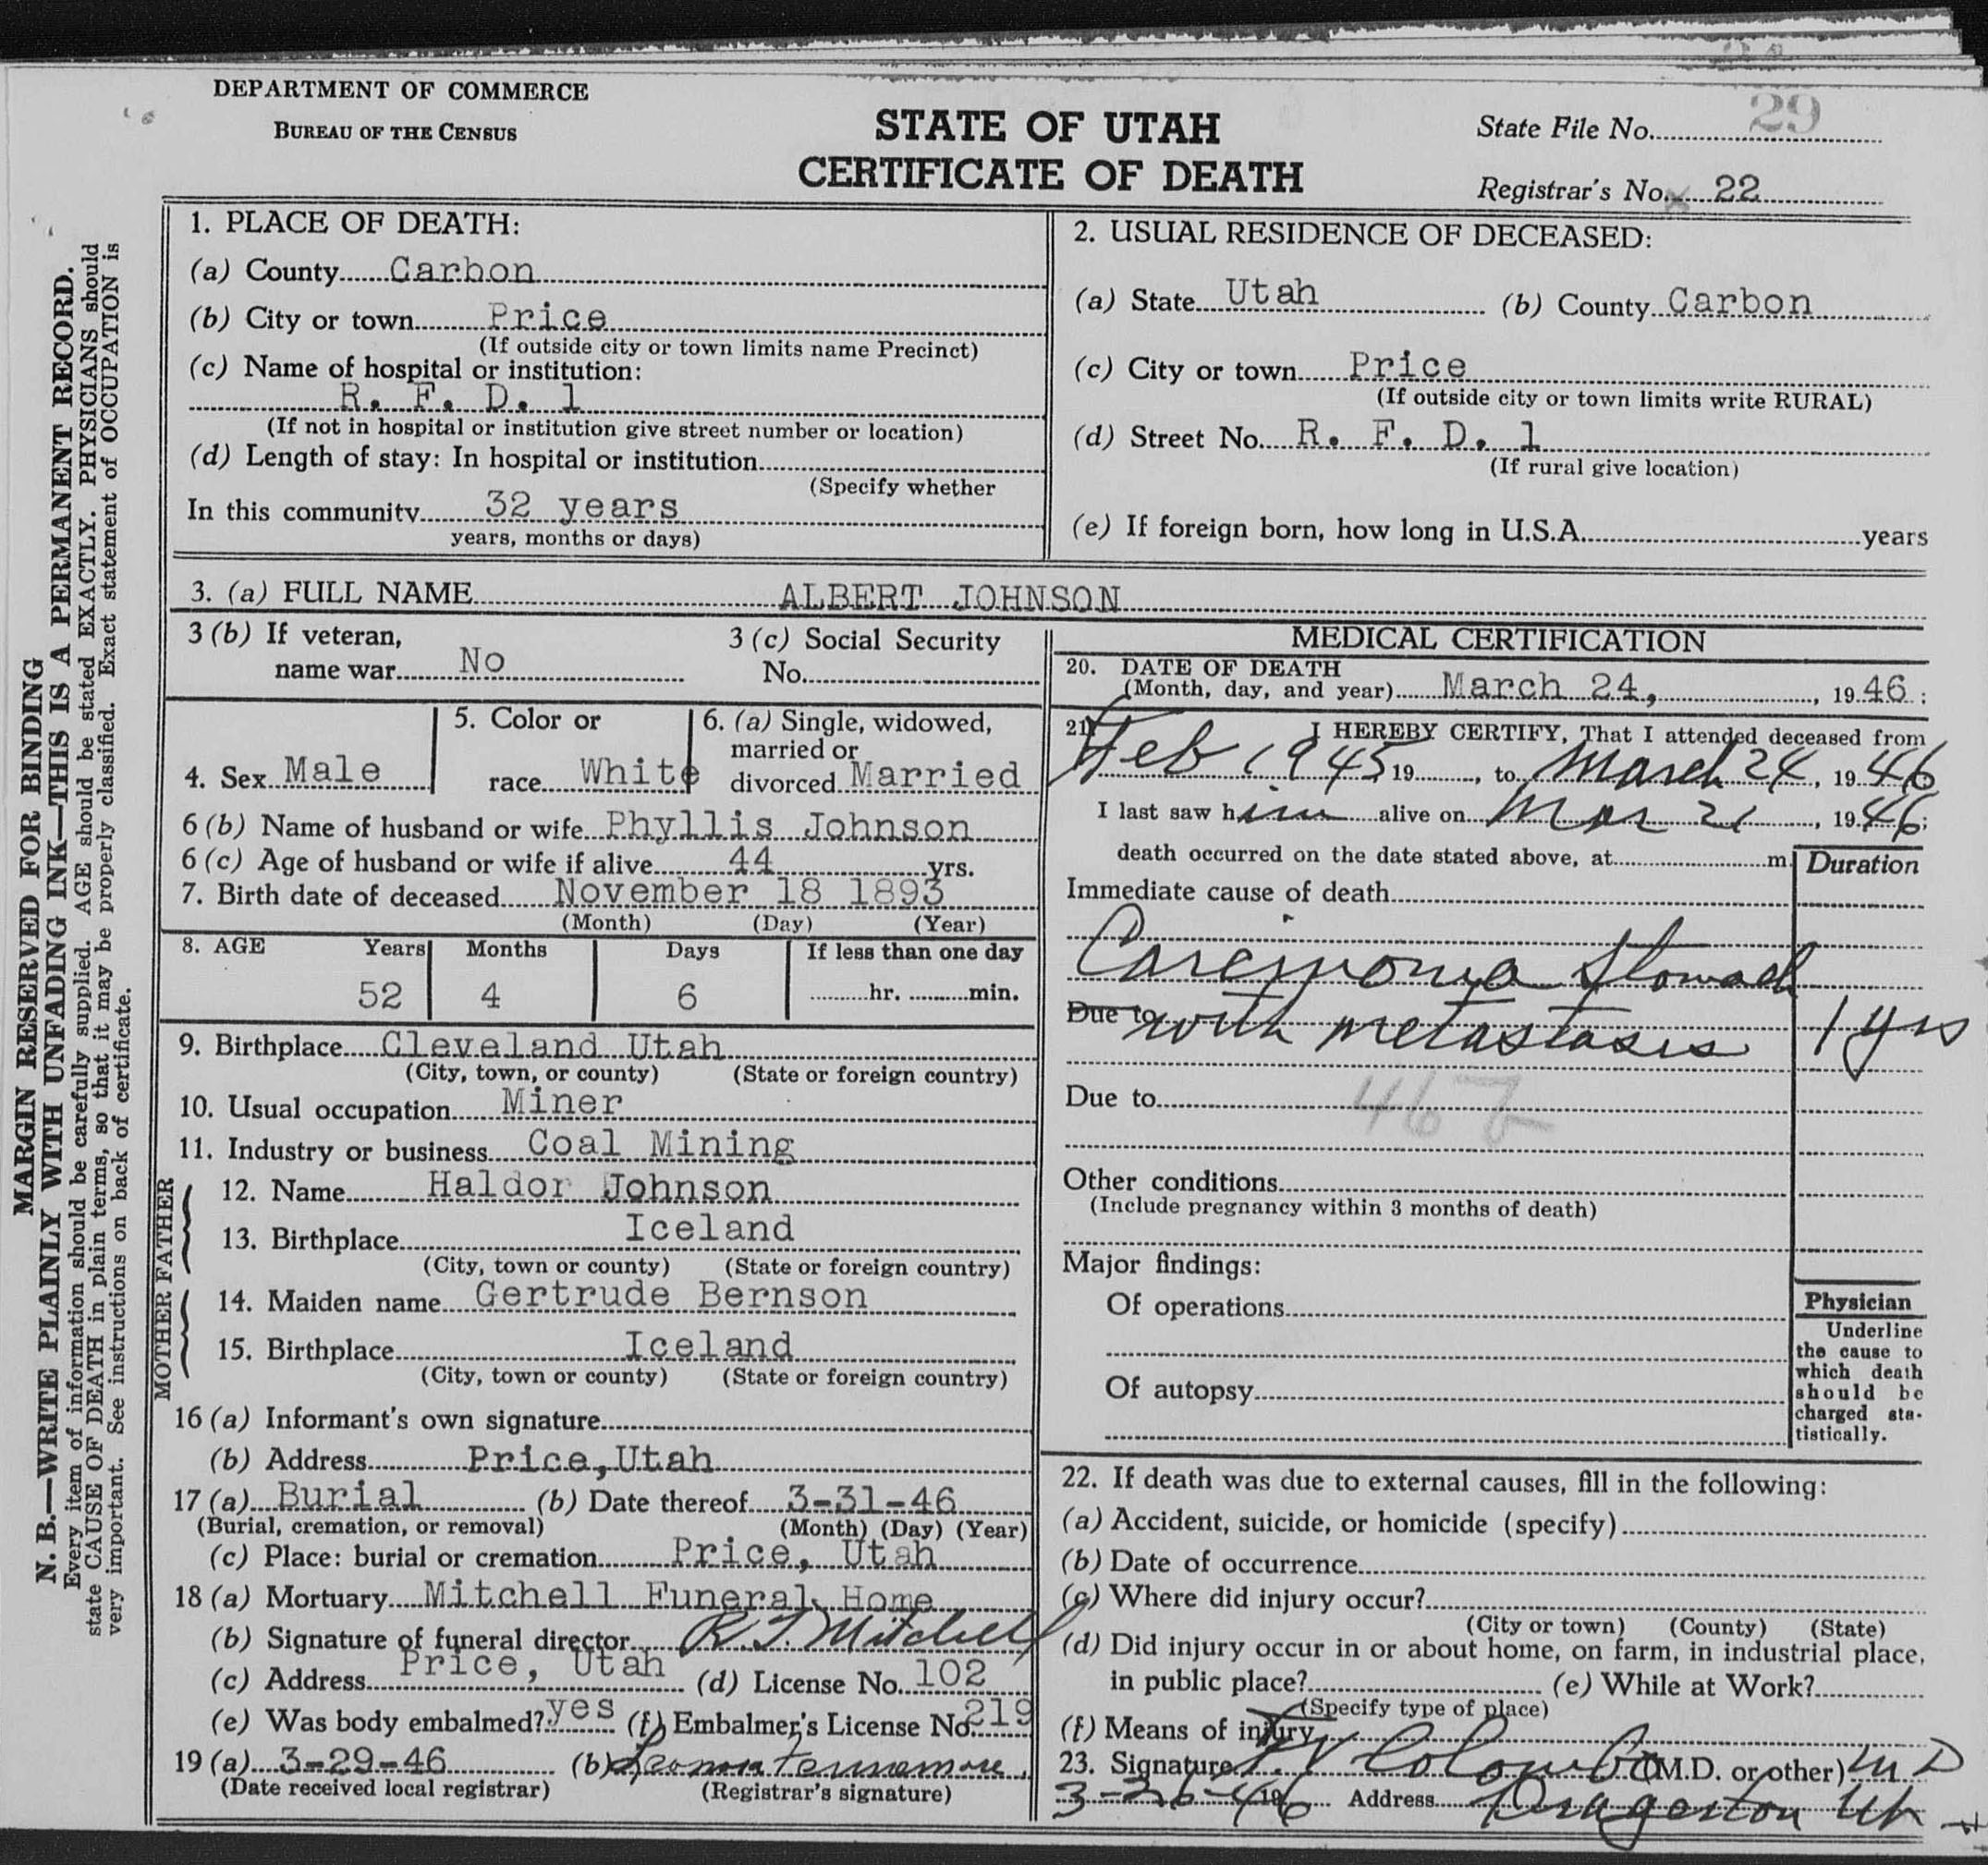 DEPARTMENT OF COMMERCE
BUREAU OF THE CENSUS
STATE OF UTAH
CERTIFICATE OF DEATH
State File No. 29
Registrar's No. 22
MARGIN RESERVED FOR BINDING
N. B.—WRITE PLAINLY WITH UNFADING INK—THIS IS A PERMANENT RECORD.
Every item of information should be carefully supplied. AGE should be stated EXACTLY. PHYSICIANS should
state CAUSE OF DEATH in plain terms, so that it may be properly classified. Exact statement of OCCUPATION is
very important. See instructions on back of certificate.
1. PLACE OF DEATH:
(a) County Carbon
(b) City or town Price
(If outside city or town limits name Precinct)
(c) Name of hospital or institution:
R. F. D. 1
(If not in hospital or institution give street number or location)
(d) Length of stay: In hospital or institution
(Specify whether
In this community 32 years
years, months or days)
2. USUAL RESIDENCE OF DECEASED:
(a) State Utah (b) County Carbon
(c) City or town Price
(If outside city or town limits write RURAL)
(d) Street No. R. F. D. 1
(If rural give location)
(e) If foreign born, how long in U.S.A. years
3. (a) FULL NAME ALBERT JOHNSON
3 (b) If veteran,
name war No
3 (c) Social Security
No.
4. Sex Male
5. Color or
race White
6. (a) Single, widowed,
married or
divorced Married
6 (b) Name of husband or wife Phyllis Johnson
6 (c) Age of husband or wife if alive 44 yrs.
7. Birth date of deceased November 18 1893
(Month) (Day) (Year)
8. AGE Years Months Days If less than one day
52 4 6 hr. min.
9. Birthplace Cleveland Utah
(City, town, or county) (State or foreign country)
10. Usual occupation Miner
11. Industry or business Coal Mining
FATHER
12. Name Haldor Johnson
13. Birthplace Iceland
(City, town or county) (State or foreign country)
MOTHER
14. Maiden name Gertrude Bernson
15. Birthplace Iceland
(City, town or county) (State or foreign country)
16 (a) Informant's own signature
(b) Address Price,Utah
17 (a) Burial (b) Date thereof 3-31-46
(Burial, cremation, or removal) (Month) (Day) (Year)
(c) Place: burial or cremation Price, Utah
18 (a) Mortuary Mitchell Funeral Home
(b) Signature of funeral director Mitchell
(c) Address Price, Utah (d) License No. 102
(e) Was body embalmed? yes (f) Embalmer's License No. 219
19 (a) 3-29-46 (b)
(Date received local registrar) (Registrar's signature)
MEDICAL CERTIFICATION
20. DATE OF DEATH
(Month, day, and year) March 24, 1946;
21. I HEREBY CERTIFY, That I attended deceased from
Feb 1945 19 , to March 24, 1946
I last saw him alive on Mar 21, 1946;
death occurred on the date stated above, at m. Duration
Immediate cause of death
Carcinoma Stomach
Due to with metastasis 1 yrs
Due to 46
Other conditions
(Include pregnancy within 3 months of death)
Major findings:
Of operations
Of autopsy
Physician
Underline
the cause to
which death
should be
charged sta-
tistically.
22. If death was due to external causes, fill in the following:
(a) Accident, suicide, or homicide (specify)
(b) Date of occurrence
(c) Where did injury occur?
(City or town) (County) (State)
(d) Did injury occur in or about home, on farm, in industrial place,
in public place? (e) While at Work?
(Specify type of place)
(f) Means of injury
23. Signature Colombo (M.D. or other) M D
3-26-46 19 Address Dragerton Ut